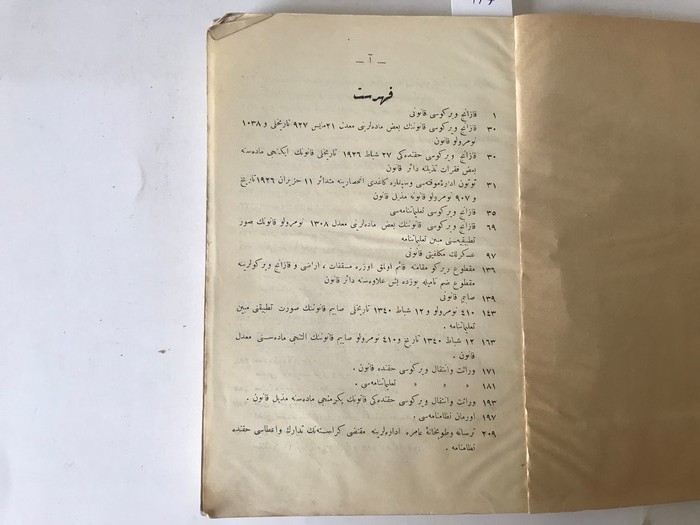 — آ —
فهرست
١ قازانج ویركوسی قانونی
٣٠ قازانج ویركوسی قانوننك بعض ماده‌لرینی معدل ٢١ مایس ٩٢٧ تاریخلی و ١٠٣٨
نومرولو قانون
٣٠ قازانج ویركوسی حقنده‌كی ٢٧ شباط ١٩٢٦ تاریخلی قانونك ایكنجی ماده‌سنه
بعض فقرات تذیلنه دائر قانون
٣١ توتون اداره‌ٔ موقته‌سی وسیغاره كاغدی انحصارینه متدائر ١١ حزیران ١٩٢٦ تاریخ
و ٩٠٧ نومرولو قانونه مذیل قانون
٣٥ قازانج ویركوسی تعلیماتنامه‌سی
٦٩ قازانج ویركوسی قانوننك بعض ماده‌لرینی معدل ١٣٠٨ نومرولو قانونك صور
تطبیقیه‌سنی مبین تعلیماتنامه
٩٧ عسكرلك مكلفیتی قانونی
١٣٦ مقطوع ویركو مقامنه قائم اولمق اوزره مسقفات ، اراضی و قازانج ویركولرینه
مقطوع ضم نامیله یوزده بش علاوه‌سنه دائر قانون
١٣٩ صایم قانونی
١٤٣ ٤١٠ نومرولو و ١٢ شباط ١٣٤٠ تاریخلی صایم قانوننك صورت تطبیقنی مبین
تعلیماتنامه .
١٦٣ ١٢ شباط ١٣٤٠ تاریخ و ٤١٠ نومرولو صایم قانوننك التنجی ماده‌سنی معدل
قانون .
١٧١ وراثت وانتقال ویركوسی حقنده قانون .
١٨١ » » » » تعلیماتنامه‌سی .
١٩٣ وراثت وانتقال ویركوسی حقنده‌كی قانونك یكرمنجی ماده‌سنه مذیل قانون .
١٩٧ اورمان نظامنامه‌سی .
٢٠٩ ترسانه وطوبخانهٔ عامره اداره‌لرینه مقتضی كراسته‌نك تدارك واعطاسی حقنده
نظامنامه .